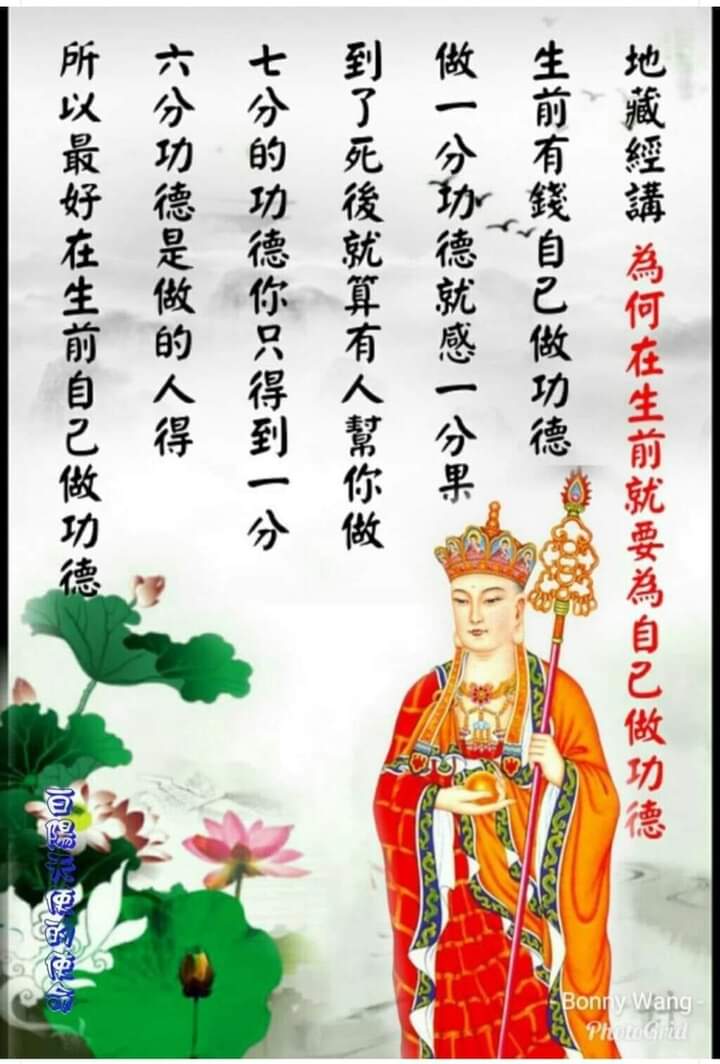 地藏經講 為何在生前就要為自己做功德
生前有錢自己做功德
做一分功德就感一分果
到了死後就算有人幫你做
七分的功德你只得到一分
六分功德是做的人得
所以最好在生前自己做功德
- Bonny Wang -
PhotoGrid